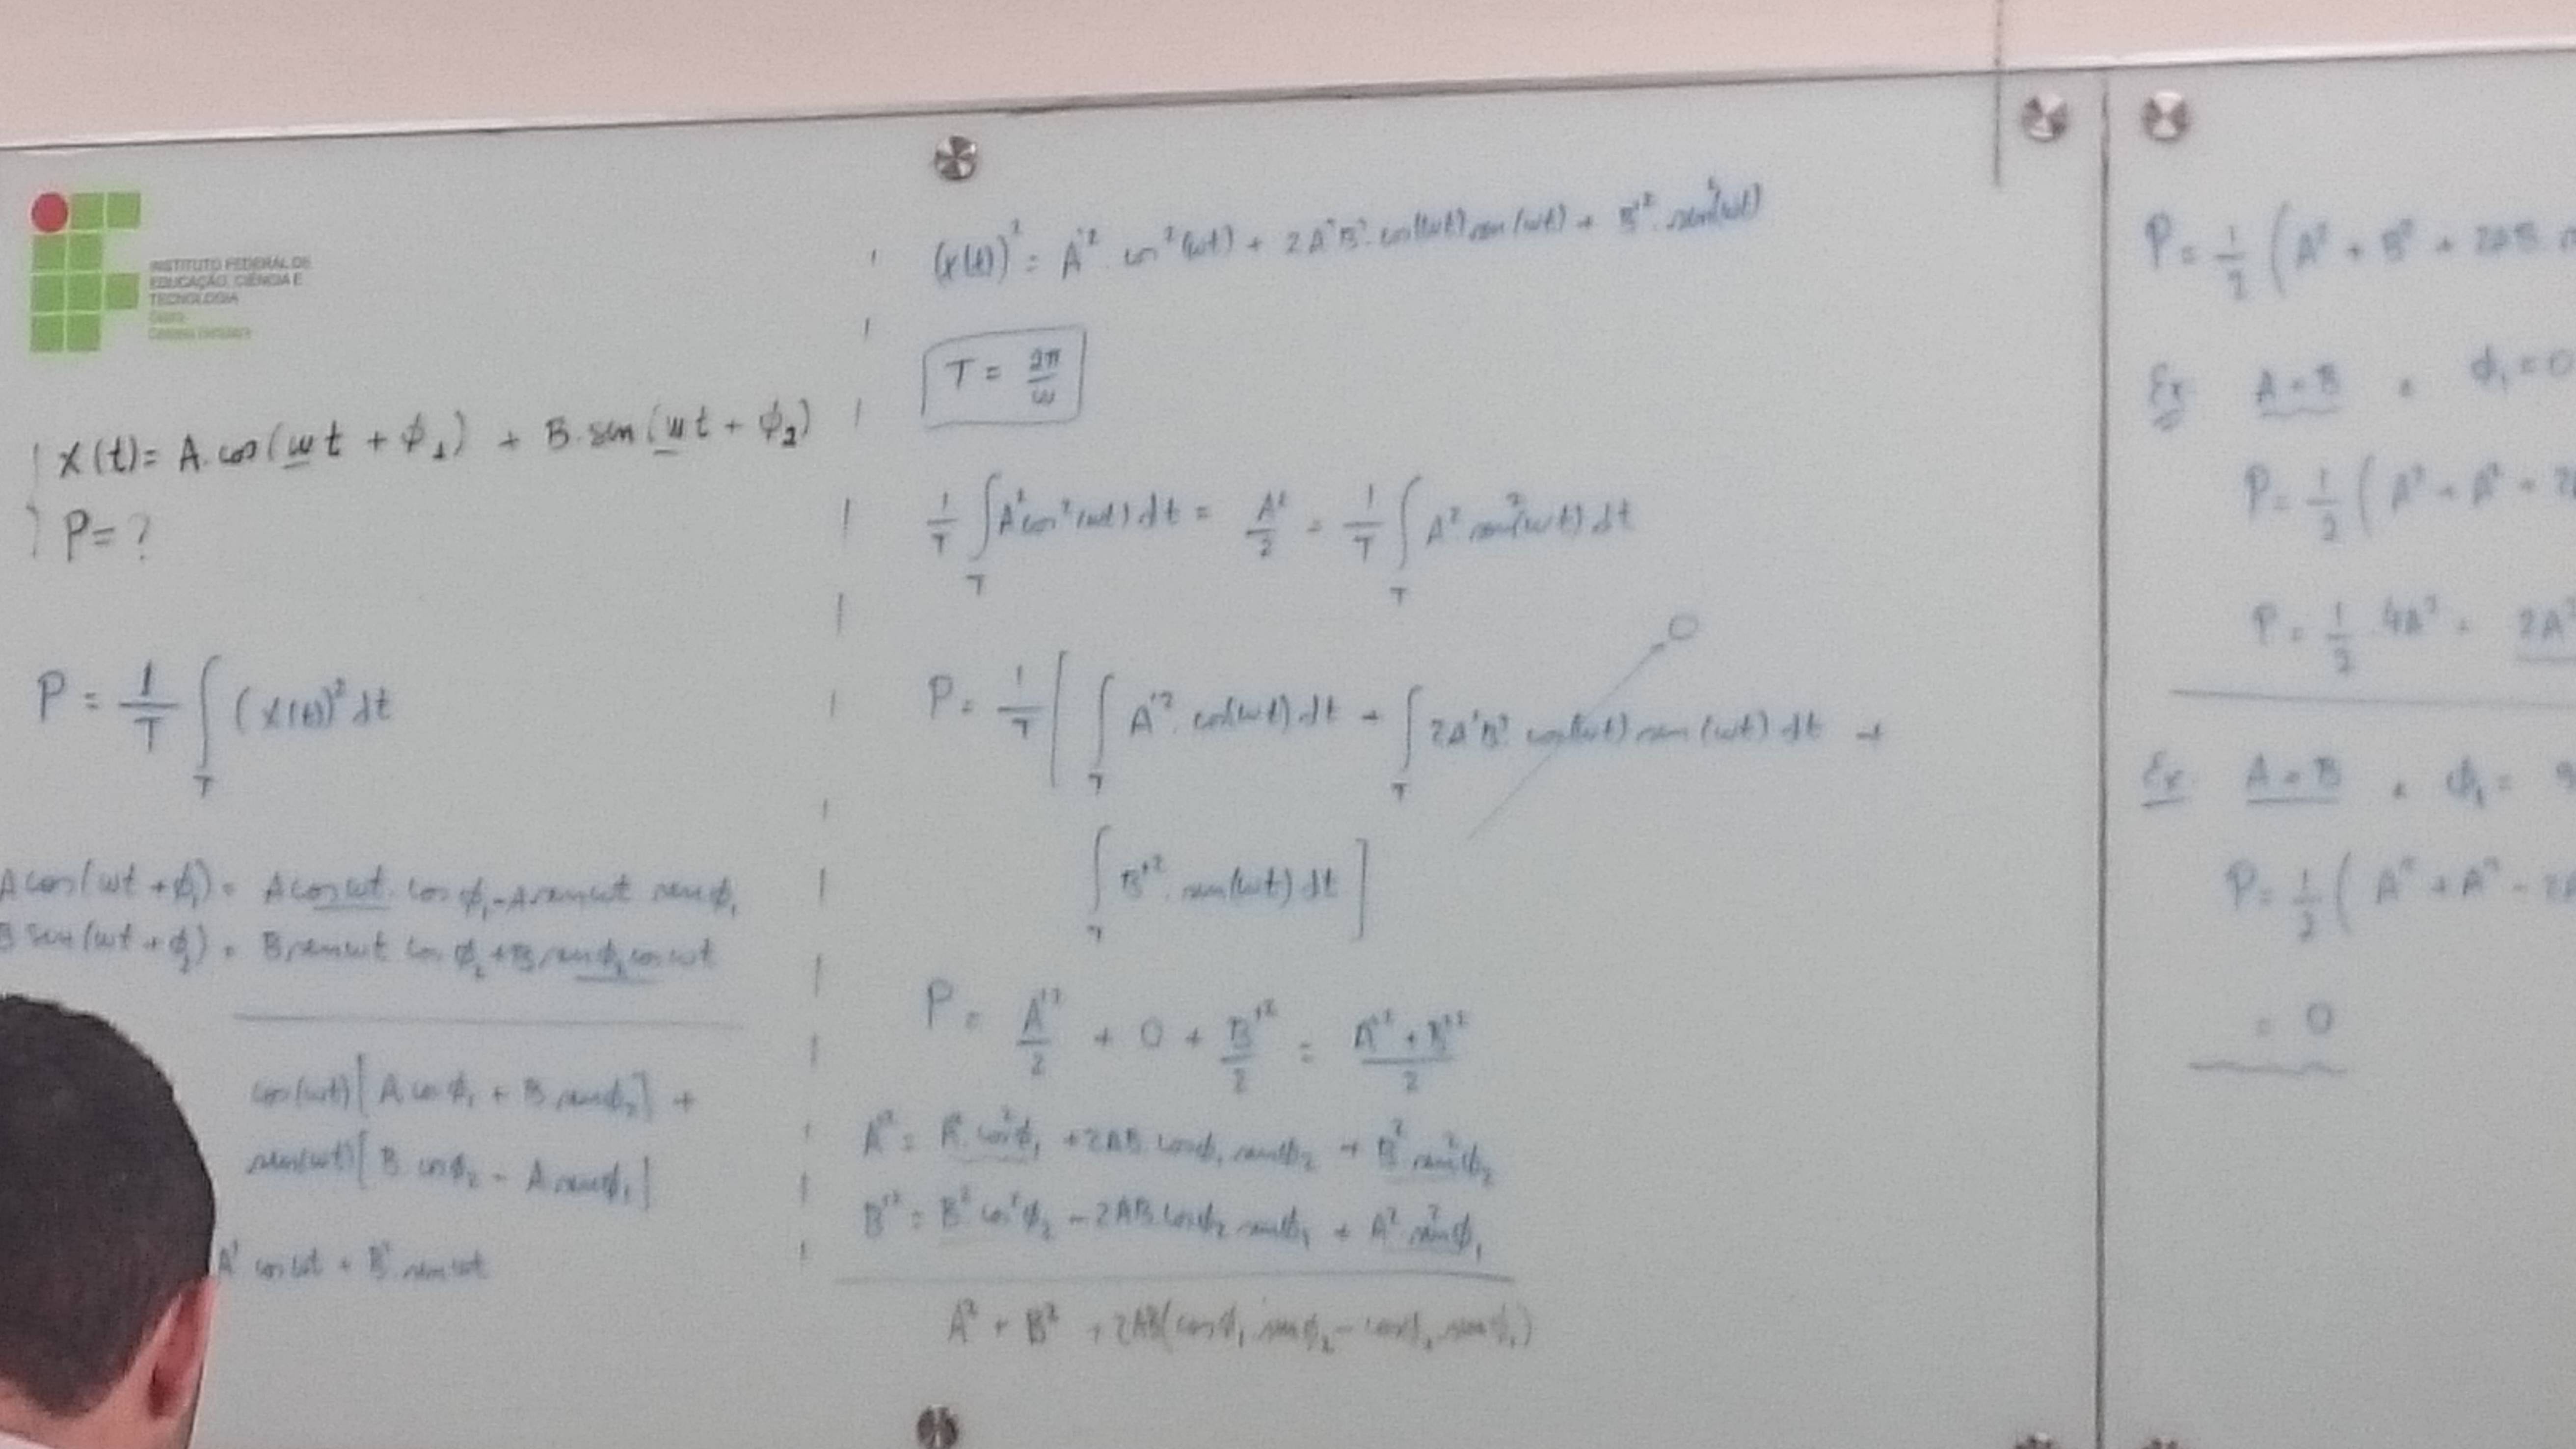 INSTITUTO FEDERAL DE
EDUCAÇÃO, CIÊNCIA E
TECNOLOGIA
Ceará
x(t) = A.cos(wt + ϕ₁) + B.sen(wt + ϕ₂)
P = ?
P = 1/T ∫_T (x(t))² dt
A cos(wt + ϕ₁) = A cos wt . cos ϕ₁ - A sen wt sen ϕ₁
B sen(wt + ϕ₂) = B sen wt cos ϕ₂ + B sen ϕ₂ cos wt
cos(wt)[A cos ϕ₁ + B sen ϕ₂] +
sen(wt)[B cos ϕ₂ - A sen ϕ₁]
A' cos wt + B' sen wt
(x(t))² = A'² . cos²(wt) + 2A'B'.cos(wt) sen(wt) + B'² . sen²(wt)
T = 2π/w
1/T ∫_T A² cos²(wt) dt = A²/2 = 1/T ∫_T A² sen²(wt) dt
P = 1/T [ ∫_T A'² . cos(wt) dt + ∫_T 2A'B'. cos(wt) sen(wt) dt + 0
∫_T B'² . sen(wt) dt ]
P = A'²/2 + 0 + B'²/2 = (A'² + B'²)/2
A'² = A² . cos²ϕ₁ + 2AB cosϕ₁ senϕ₂ + B² sen²ϕ₂
B'² = B² cos²ϕ₂ - 2AB cosϕ₂ senϕ₁ + A² sen²ϕ₁
A² + B² + 2AB(cosϕ₁ senϕ₂ - cosϕ₂ senϕ₁)
P = 1/2 (A² + B² + 2AB
Ex A = B ϕ₁ = 0
P = 1/2 (A² + A² + 2
P = 1/2 4A² = 2A²
Ex A = B ϕ₁ =
P = 1/2 (A² + A² - 2A
= 0